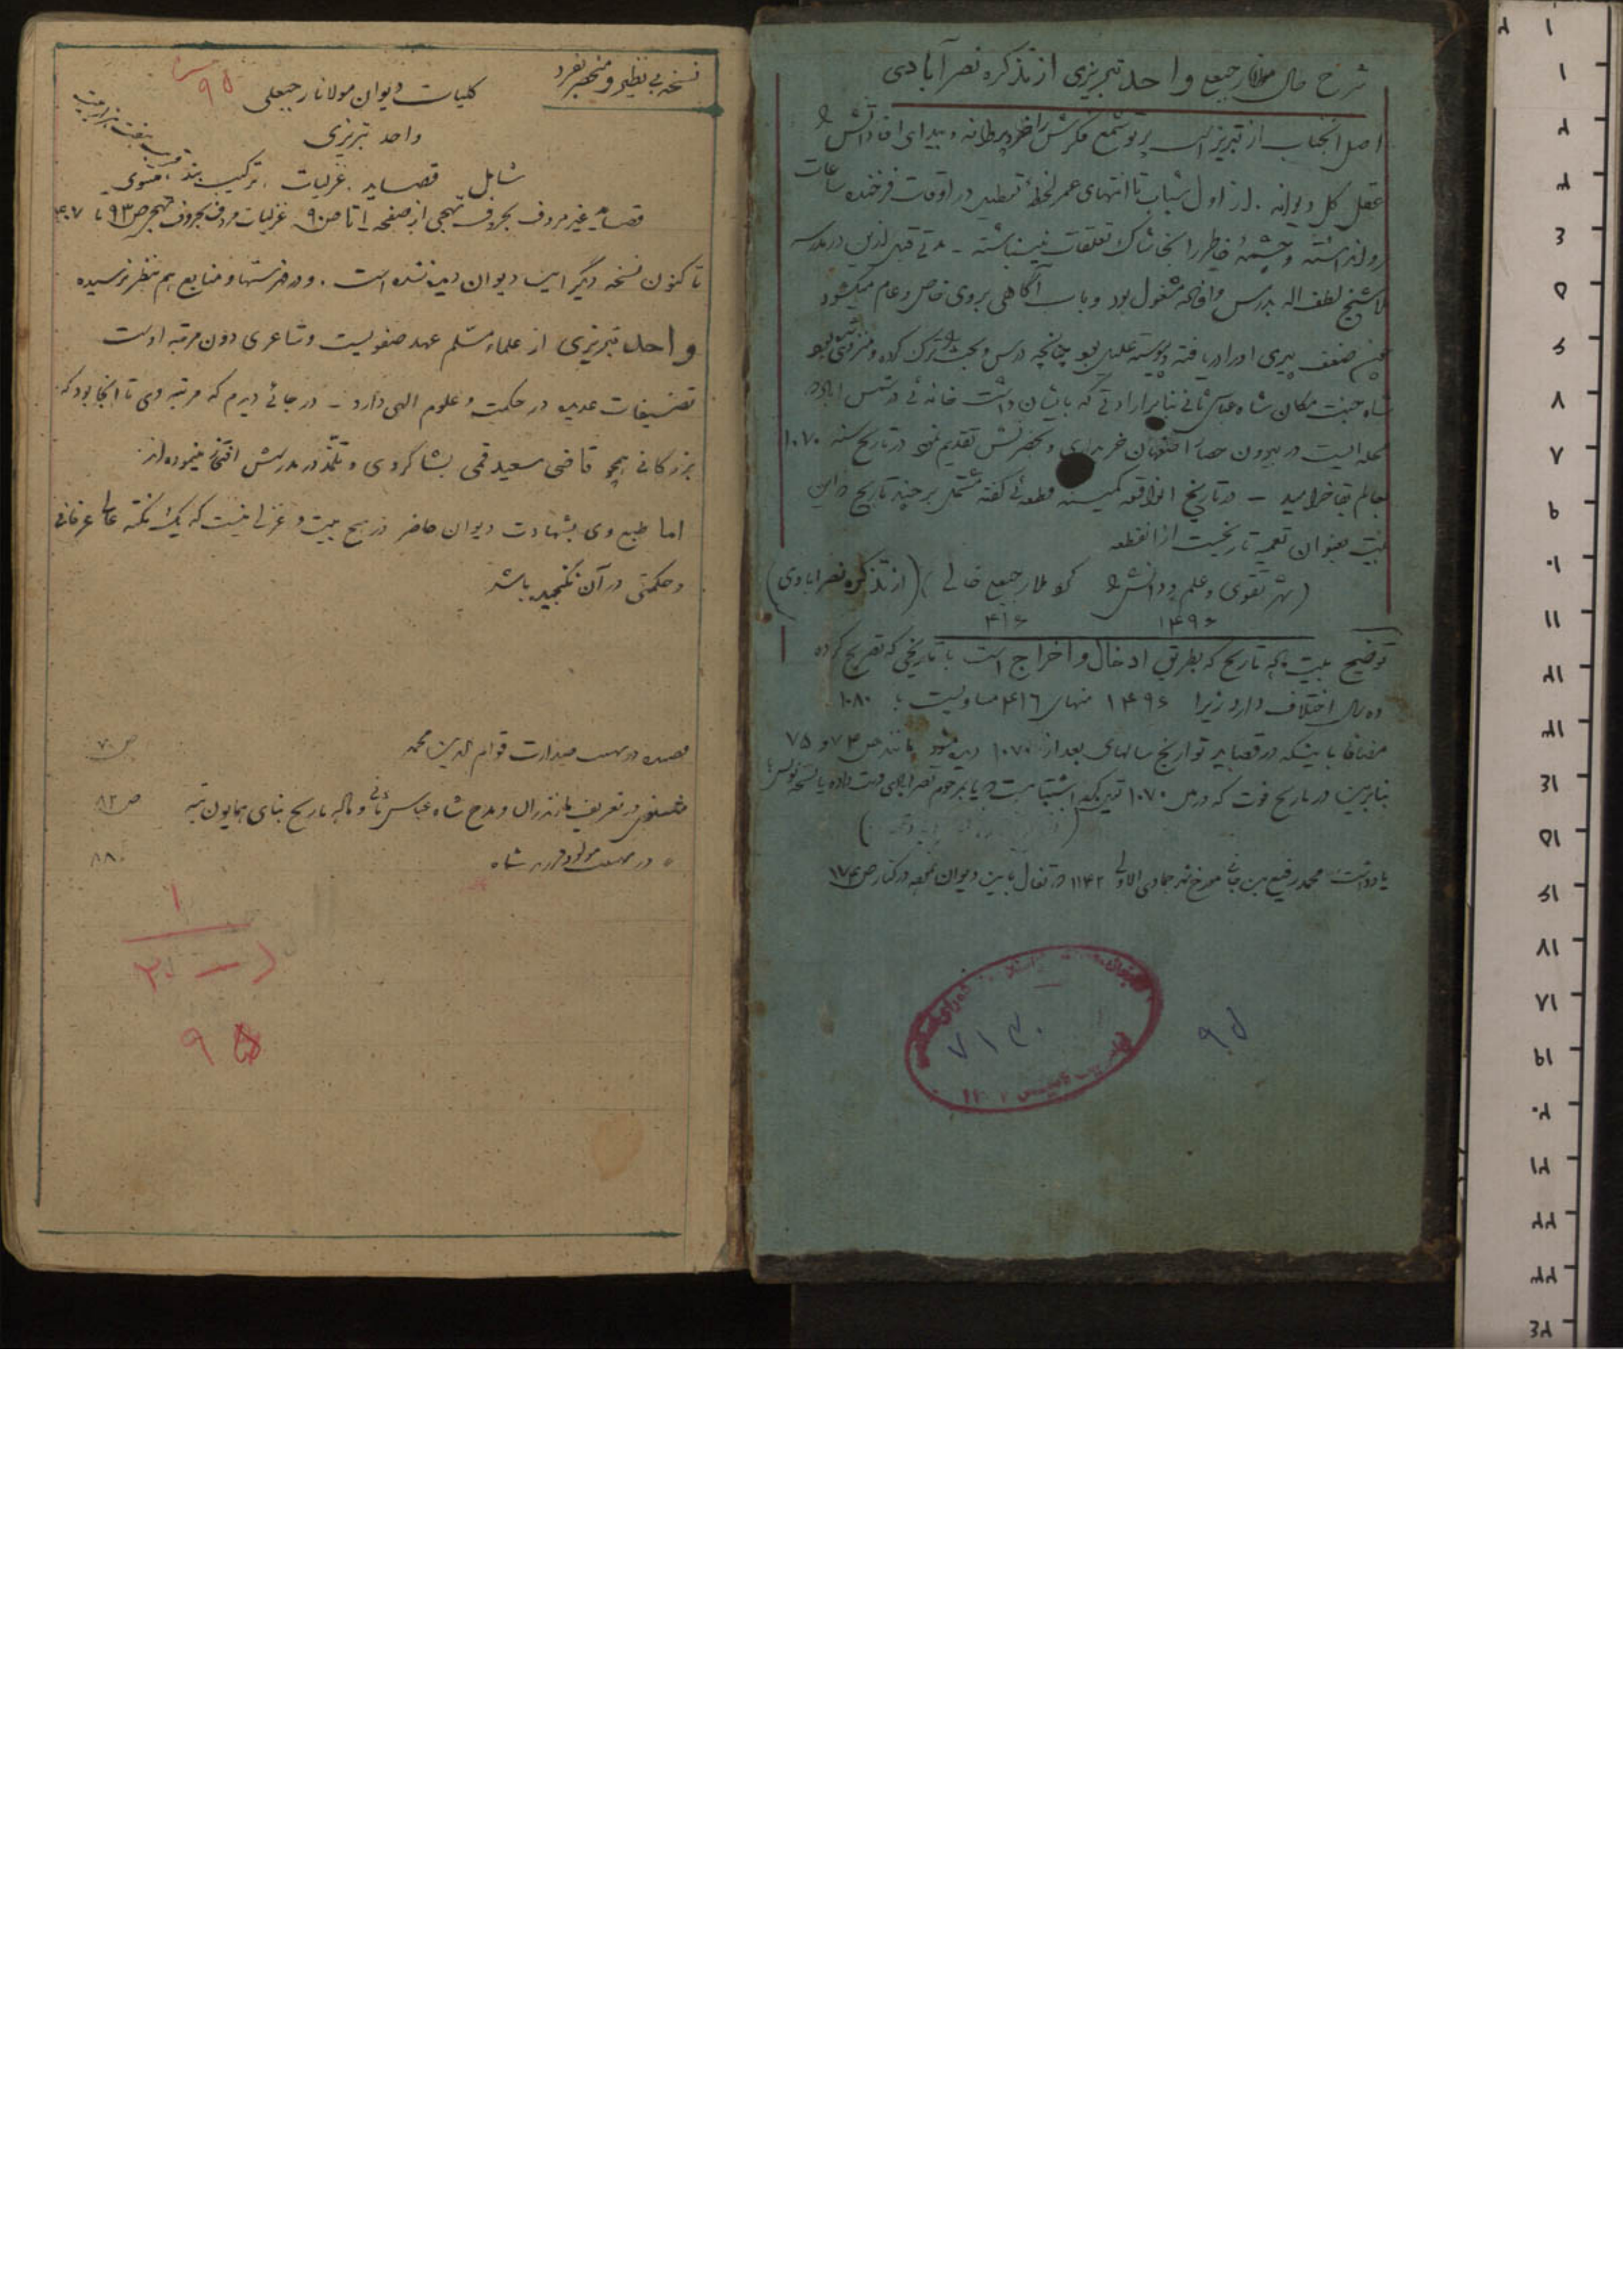 شرح حال مولانا رجبعلی واحد تبریزی از تذکره نصرآبادی
اصل آنجناب از تبریز است پرتو شمع فکرش را خرد پروانه و بیدای افتاد دانش را
عقل کل دیوانه . از اول شباب تا انتهای عمر لحظهٔ تعطیل در اوقات فرخنده ساعات
روا نداشته و چشمهٔ خاطر را بخاشاک تعلقات نینباشته - مدتی قبل ازین در مدرسه
شیخ لطف اله بدرس و افاده مشغول بود و باب آگاهی بروی خاص و عام میگشود
ضعف پیری او را دریافته پیوسته علیل بود چنانچه درس و بحث را ترک کرده و منزوی بود
شاه جنت مکان شاه عباس ثانی بنابر ارادتی که بایشان داشت خانه ئی در شمس آباد که
محله ایست در بیرون حصار اصفهان خریداری و بحضرتش تقدیم نمود در تاریخ سنه ۱۰۷۰
بعالم بقا خرامید - در تاریخ قطعه ئی گفته مشتمل بر چند تاریخ و این
بیت بعنوان تعمیه تاریخیست از آنقطعه
(شهر تقوی و علم و دانش را کرد ملا رجبعلی خالی) (از تذکره نصرابادی)
۱۴۹۶ ۴۱۶
توضیح بیت تاریخ که بطریق ادخال و اخراج است با تاریخی که تصریح کرده
ده سال اختلاف دارد زیرا ۱۴۹۶ منهای ۴۱۶ مساویست با ۱۰۸۰
مضافا باینکه در قصاید تواریخ سالهای بعد از ۱۰۷۰ دیده میشود مانند ص ۷۴ و ۷۵
بنابرین در تاریخ فوت که در ص ۱۰۷۰ اشتباهست و یا بر مرحوم نصرابادی دست داده یا نسخه نویس
یادداشت محمد رفیع بن مورخ شهر جمادی الاولی ۱۱۴۲ در تفال باین دیوان در کنار ص ۱۷۴
۷۱۳۰
۹۵
نسخه بی نظیر و منحصر بفرد
۹۵
کلیات دیوان مولانا رجبعلی
واحد تبریزی
شامل قصاید . غزلیات . ترکیب بند . مثنوی
قصاید غیر مردف بحروف تهجی از صفحه ۱ تا ص ۹۰ غزلیات مردف بحروف تهجی ص ۹۳ تا ۴۰۷
تا کنون نسخه دیگر این دیوان دیده نشده است . و در فهرستها و منابع هم بنظر نرسیده
واحد تبریزی از علماء مسلم عهد صفویست و شاعری دون مرتبه اوست
تصنیفات عدیده در حکمت و علوم الهی دارد - در جائی دیدم که مرتبه وی تا آنجا بود که
بزرگانی همچو قاضی سعید قمی بشاگردی و تلمذ در مدرسش افتخار مینموده اند
اما طبع وی بشهادت دیوان حاضر در هیچ بیت و غزلی نیست که یک نکته عالی عرفانی
و حکمتی در آن نگنجیده باشد
قصیده در تهنیت صدارت قوام الدین محمد ص ۷۰
مثنوی در تعریف مازندران و مدح شاه عباس ثانی و ماده تاریخ بنای همایون تپه ص ۸۲
" در تهنیت مولود فرزند شاه ۸۸
۱
۹۵
۱
۲
۳
۴
۵
۶
۷
۸
۹
۱۰
۱۱
۱۲
۱۳
۱۴
۱۵
۱۶
۱۷
۱۸
۱۹
۲۰
۲۱
۲۲
۲۳
۲۴